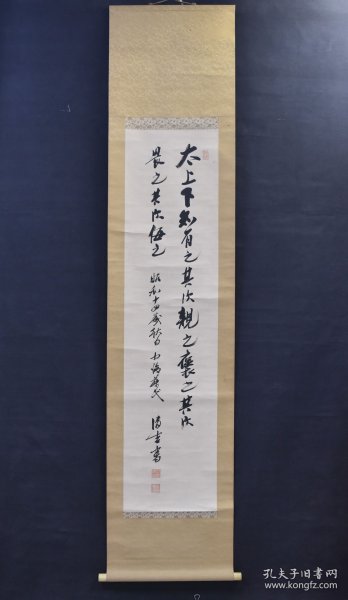 太上下知有之其次親之褒之其次
畏之其次侮之 昭和十四歳秋日
書
孔夫子旧书网
www.kongfz.com